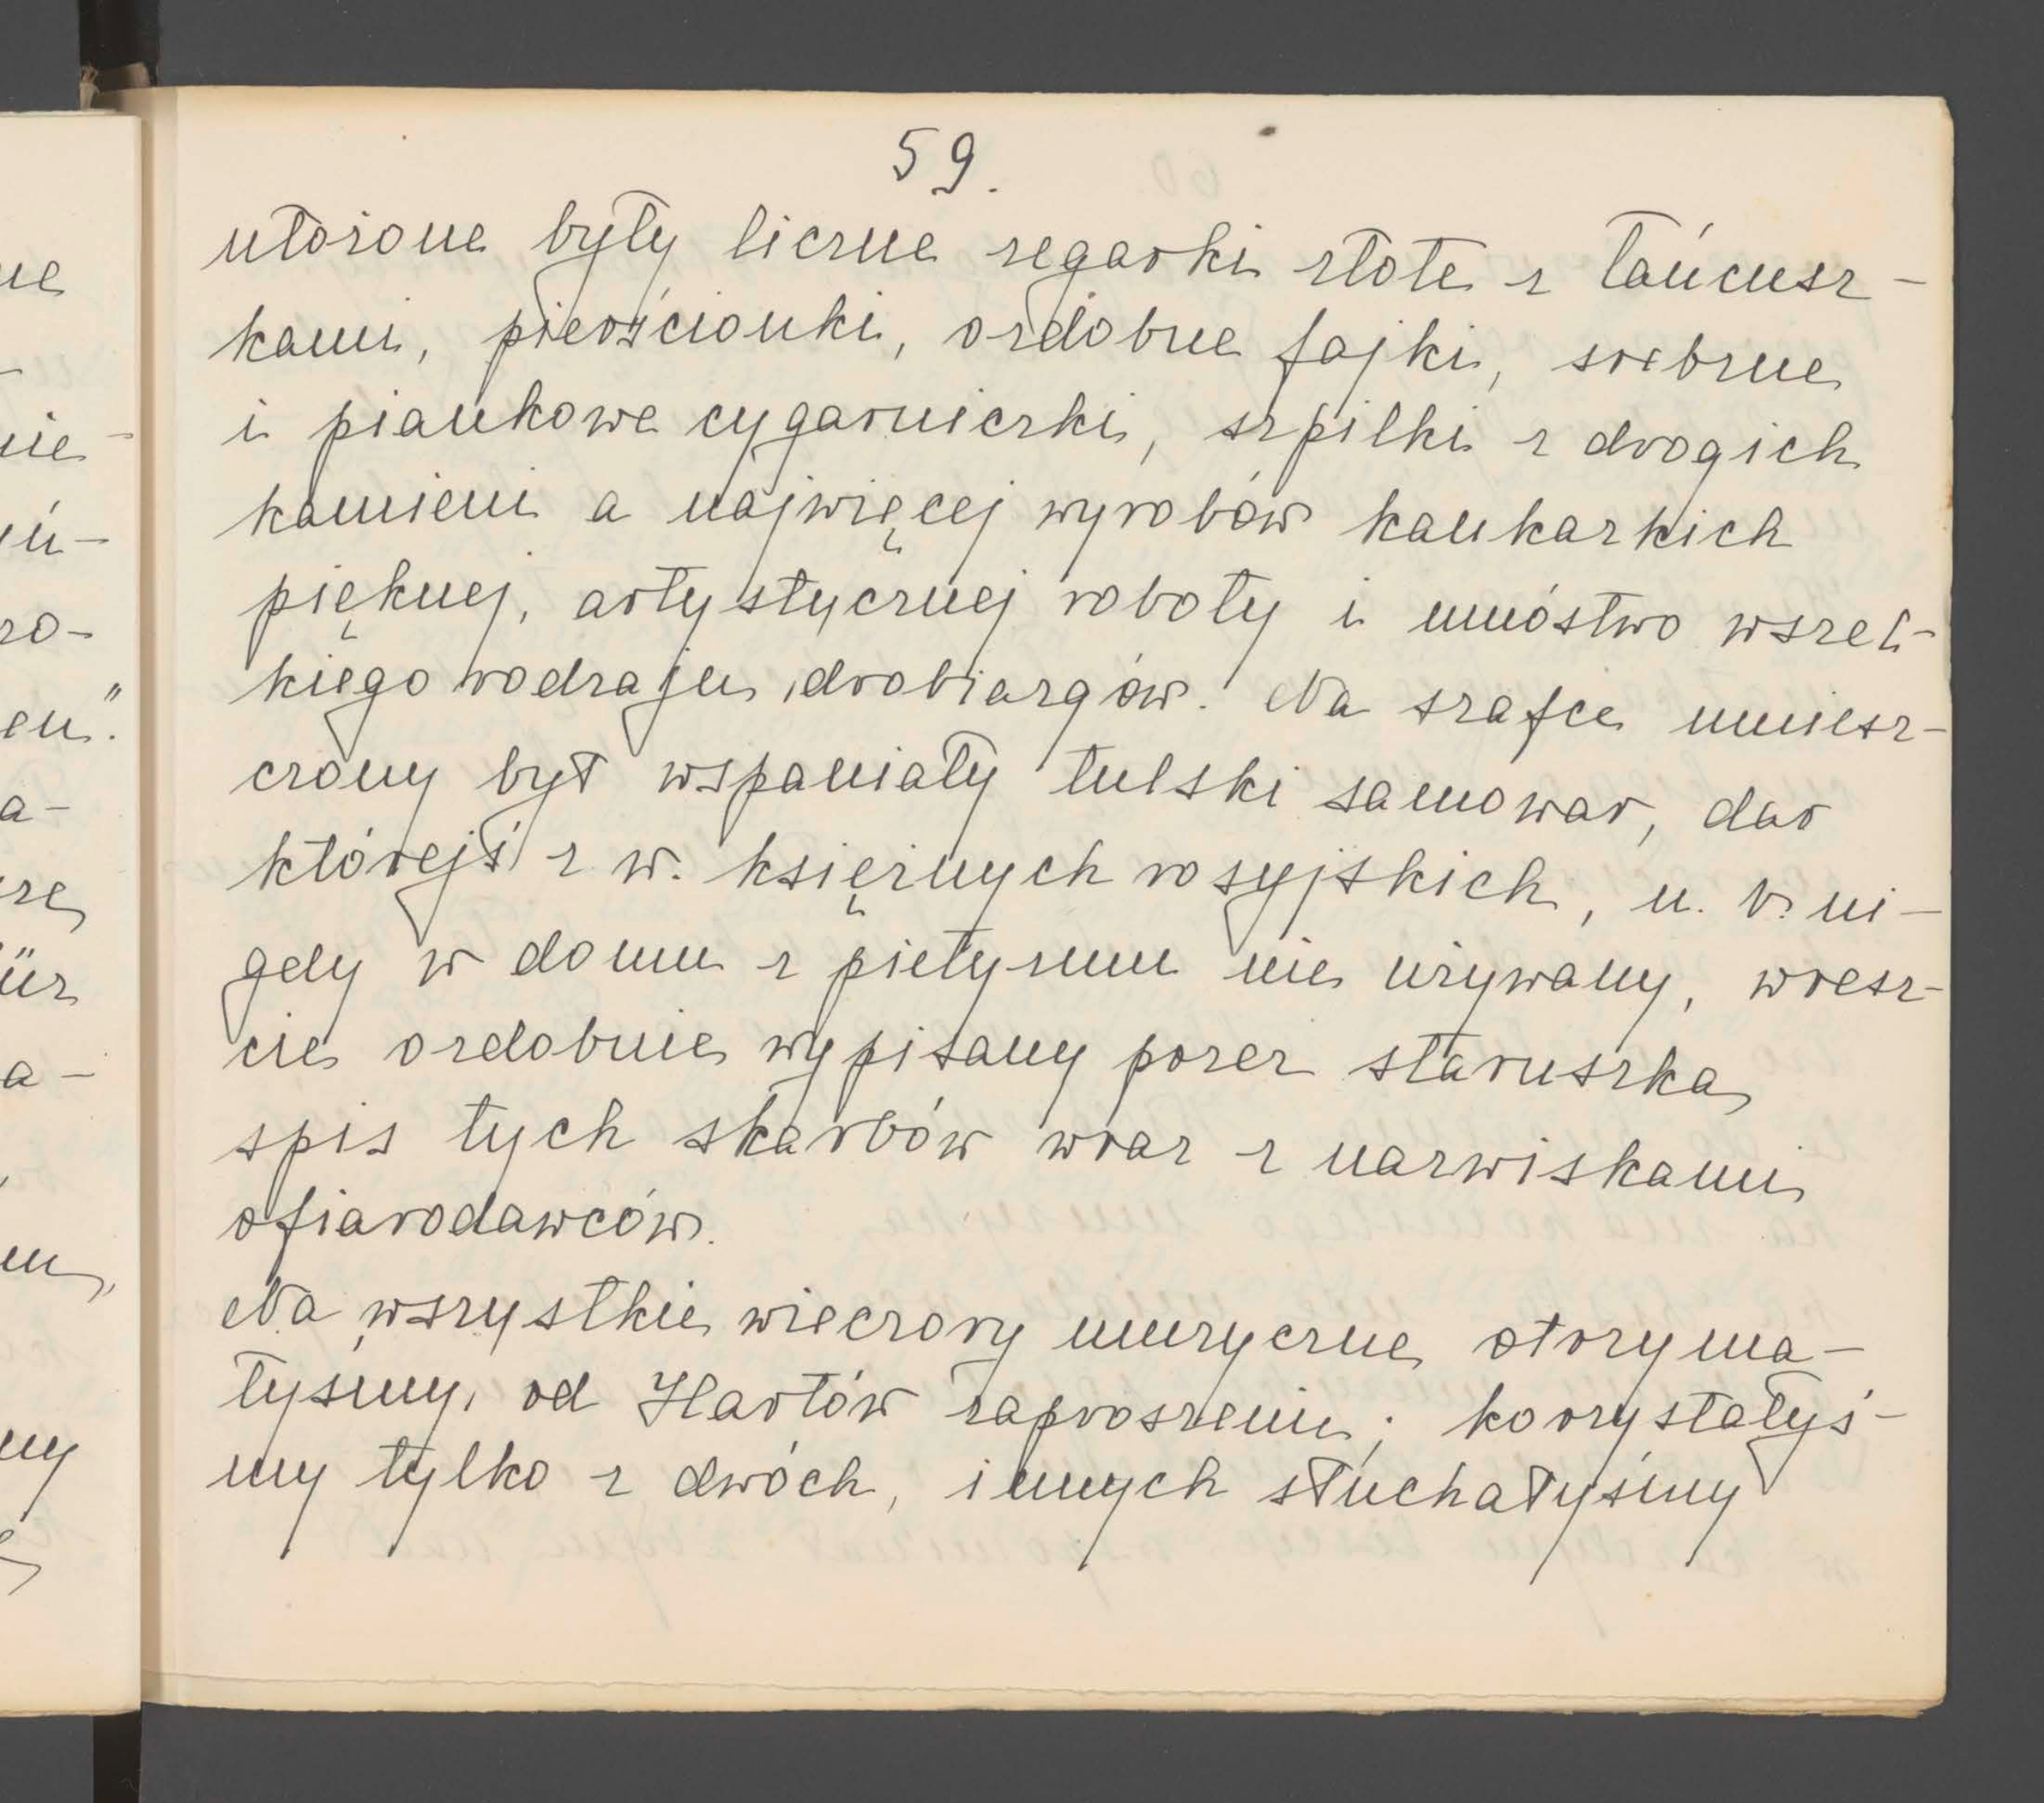 59.
ułożone były liczne zegarki złote z łańcusz-
kami, pierścionki, ozdobne fajki, srebrne
i piankowe cygarniczki, szpilki z drogich
kamieni a najwięcej wyrobów kaukazkich
pięknej, artystycznej roboty i mnóstwo wszel-
kiego rodzaju drobiazgów. Na szafce umiesz-
czony był wspaniały tulski samowar, dar
którejś z w. księżnych rosyjskich, n. b. ni-
gdy w domu z pietyzmu nie używany, wresz-
cie ozdobnie wypisany przez staruszka
spis tych skarbów wraz z nazwiskami
ofiarodawców.
Na wszystkie wieczory muzyczne otrzyma-
łyśmy od Hartów zaproszenie; korzystałyś-
my tylko z dwóch, innych słuchałyśmy
ne
nie-
ń-
ro-
en".
a-
rze
ür
a-
m,
ny